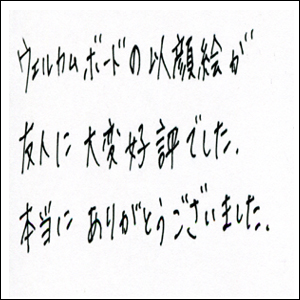 ウェルカムボードの以顔絵が
友人に大変好評でした.
本当にありがとうございました.